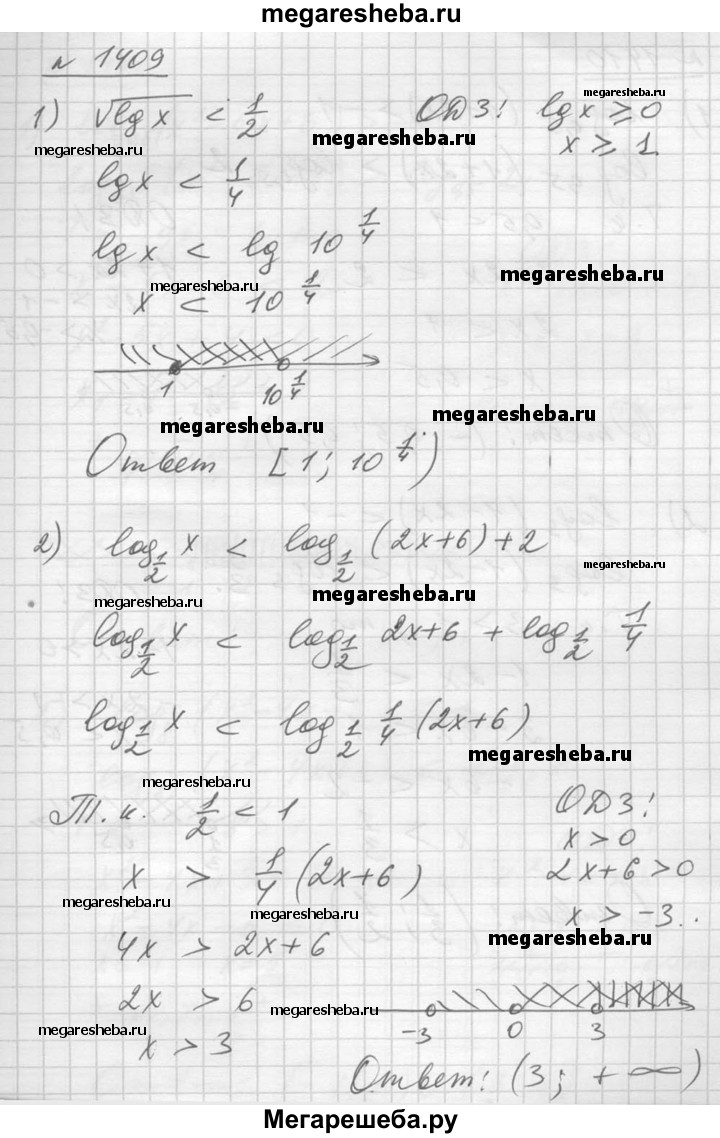 megaresheba.ru
n 1409
1) √lg x < 1/2 ОДЗ! lg x ≥ 0
megaresheba.ru
megaresheba.ru
megaresheba.ru
x ≥ 1
lg x < 1/4
lg x < lg 10^(1/4)
megaresheba.ru
megaresheba.ru
x < 10^(1/4)
1 10^(1/4)
megaresheba.ru
megaresheba.ru
Ответ [1; 10^(1/4))
2) log_(1/2) x < log_(1/2) (2x+6) + 2
megaresheba.ru
megaresheba.ru
log_(1/2) x < log_(1/2) 2x+6 + log_(1/2) 1/4
log_(1/2) x < log_(1/2) 1/4 (2x+6)
megaresheba.ru
megaresheba.ru
Т.к. 1/2 < 1 ОДЗ!
x > 0
x > 1/4 (2x+6) 2x+6 > 0
megaresheba.ru
megaresheba.ru
x > -3
megaresheba.ru
4x > 2x+6
2x > 6
megaresheba.ru
-3 0 3
megaresheba.ru
x > 3
Ответ: (3; +∞)
Мегарешеба.ру